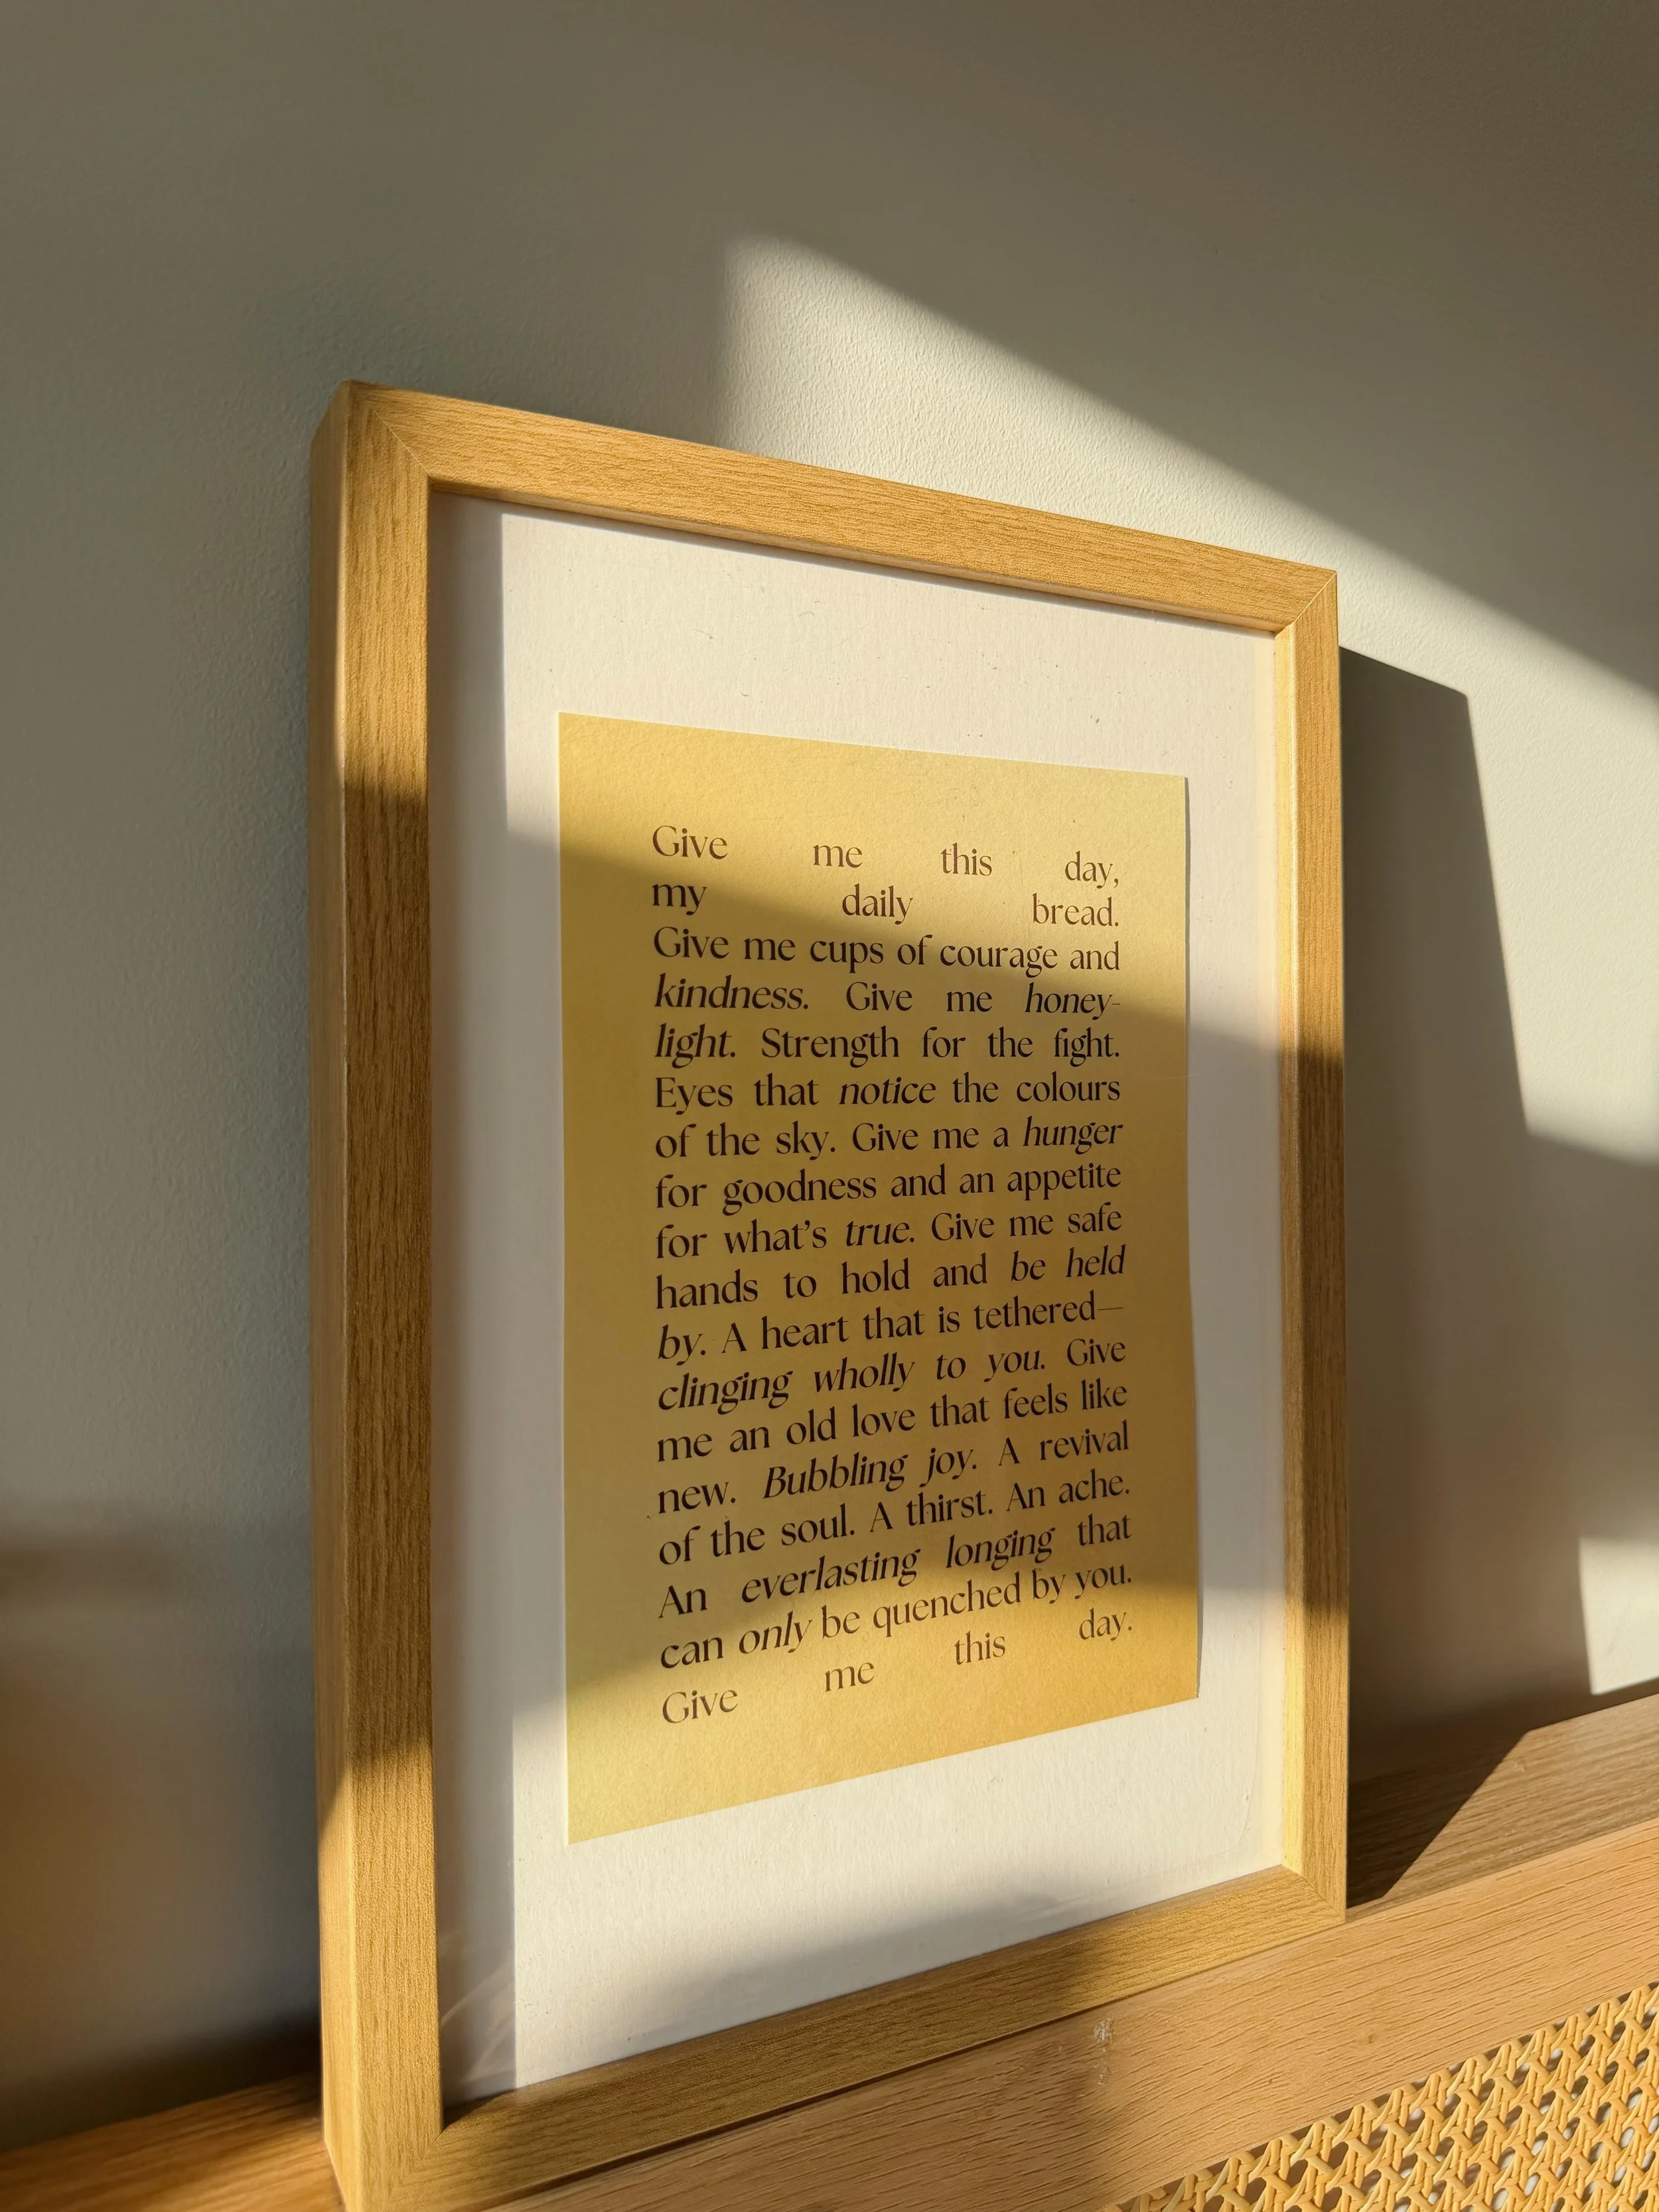 Give me this day,
my daily bread.
Give me cups of courage and
kindness. Give me honey-
light. Strength for the fight.
Eyes that notice the colours
of the sky. Give me a hunger
for goodness and an appetite
for what’s true. Give me safe
hands to hold and be held
by. A heart that is tethered—
clinging wholly to you. Give
me an old love that feels like
new. Bubbling joy. A revival
of the soul. A thirst. An ache.
An everlasting longing that
can only be quenched by you.
Give me this day.